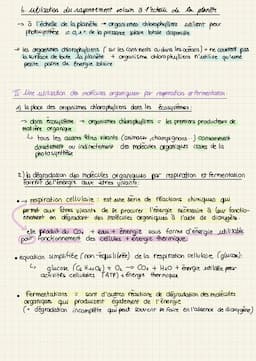 b. utilisation du rayonnement solaire à l'échelle de la planète
→ à l'échelle de la planète → organismes chlorophylliens utilisent pour
photosynthèse ≈ 0,1% de la puissance solaire totale disponible
→ les organismes chlorophylliens (sur les continents ou dans les océans) → ne couvrent pas
la surface de toute la planète → organismes chlorophylliens n'utilise qu'une
petite partie de énergie solaire
II. Une utilisation des molécules organiques par respiration et fermentation
1) la place des organismes chlorophylliens dans les écosystèmes :
→ dans écosystème → organismes chlorophylliens = les premiers producteurs de
matière organique
↳ tous les autres êtres vivants (animaux, champignons...) consomment
directement ou indirectement des molécules organiques issues de la
photosynthèse
2) la dégradation des molécules organiques par respiration et fermentation
fournit de l'énergie aux êtres vivants
• → respiration cellulaire : est une série de réactions chimiques qui
permet aux êtres vivants de se procurer l'énergie nécessaire à leur fonctio-
-nnement en dégradant des molécules organiques à l'aide de dioxygène
elle produit du CO₂ + eau + énergie sous forme d'énergie utilisable
pour fonctionnement des cellules + énergie thermique
• équation simplifiée (non-équilibrée) de la respiration cellulaire (glucose) :
↳ glucose (C₆H₁₂O₆) + O₂ → CO₂ + H₂O + énergie utilisable pour
activités cellulaires (ATP) + énergie thermique
• Fermentations = sont d'autres réactions de dégradation des molécules
organiques qui produisent également de l'énergie
(+ dégradation incomplète qui peut se faire en l'absence de dioxygène)